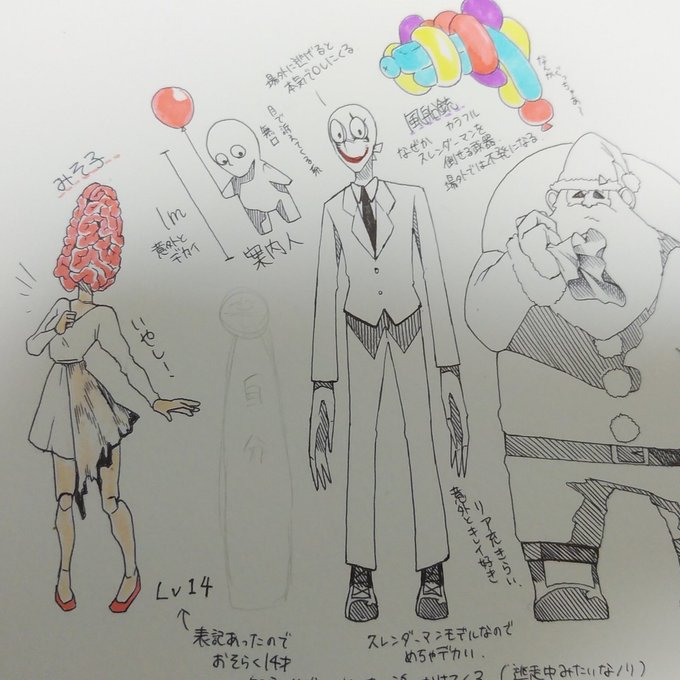 場外に逃げると
本気でOLにくる
なんかぐっちゃぁ〜
風船銃
カラフル
なぜか
スレンダーマンを
倒せる武器
場外では不発になる
目で訴えてくる系
無口
みそろ
1m
意外と
デカイ
案内人
いやしー、
自分
リア充きらい、
意外とキレイ好き
Lv14
表記あったので
おそらく14才
スレンダーマンモデルなので
めちゃデカい、
(逃走中みたいなノリ)